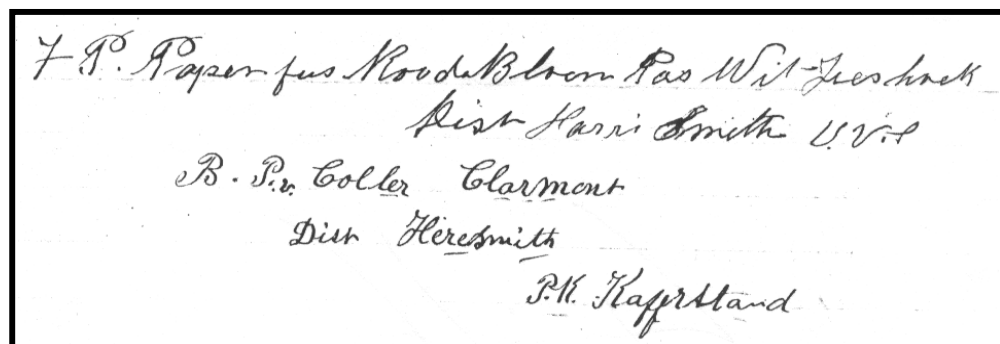 F P. Papenfus Rood Bloem Pos Witzieshoek
Dist Harri Smith O.V.S
B. P. v. Coller Clarmont
Dist Heresmith
P.K. Kafferstand